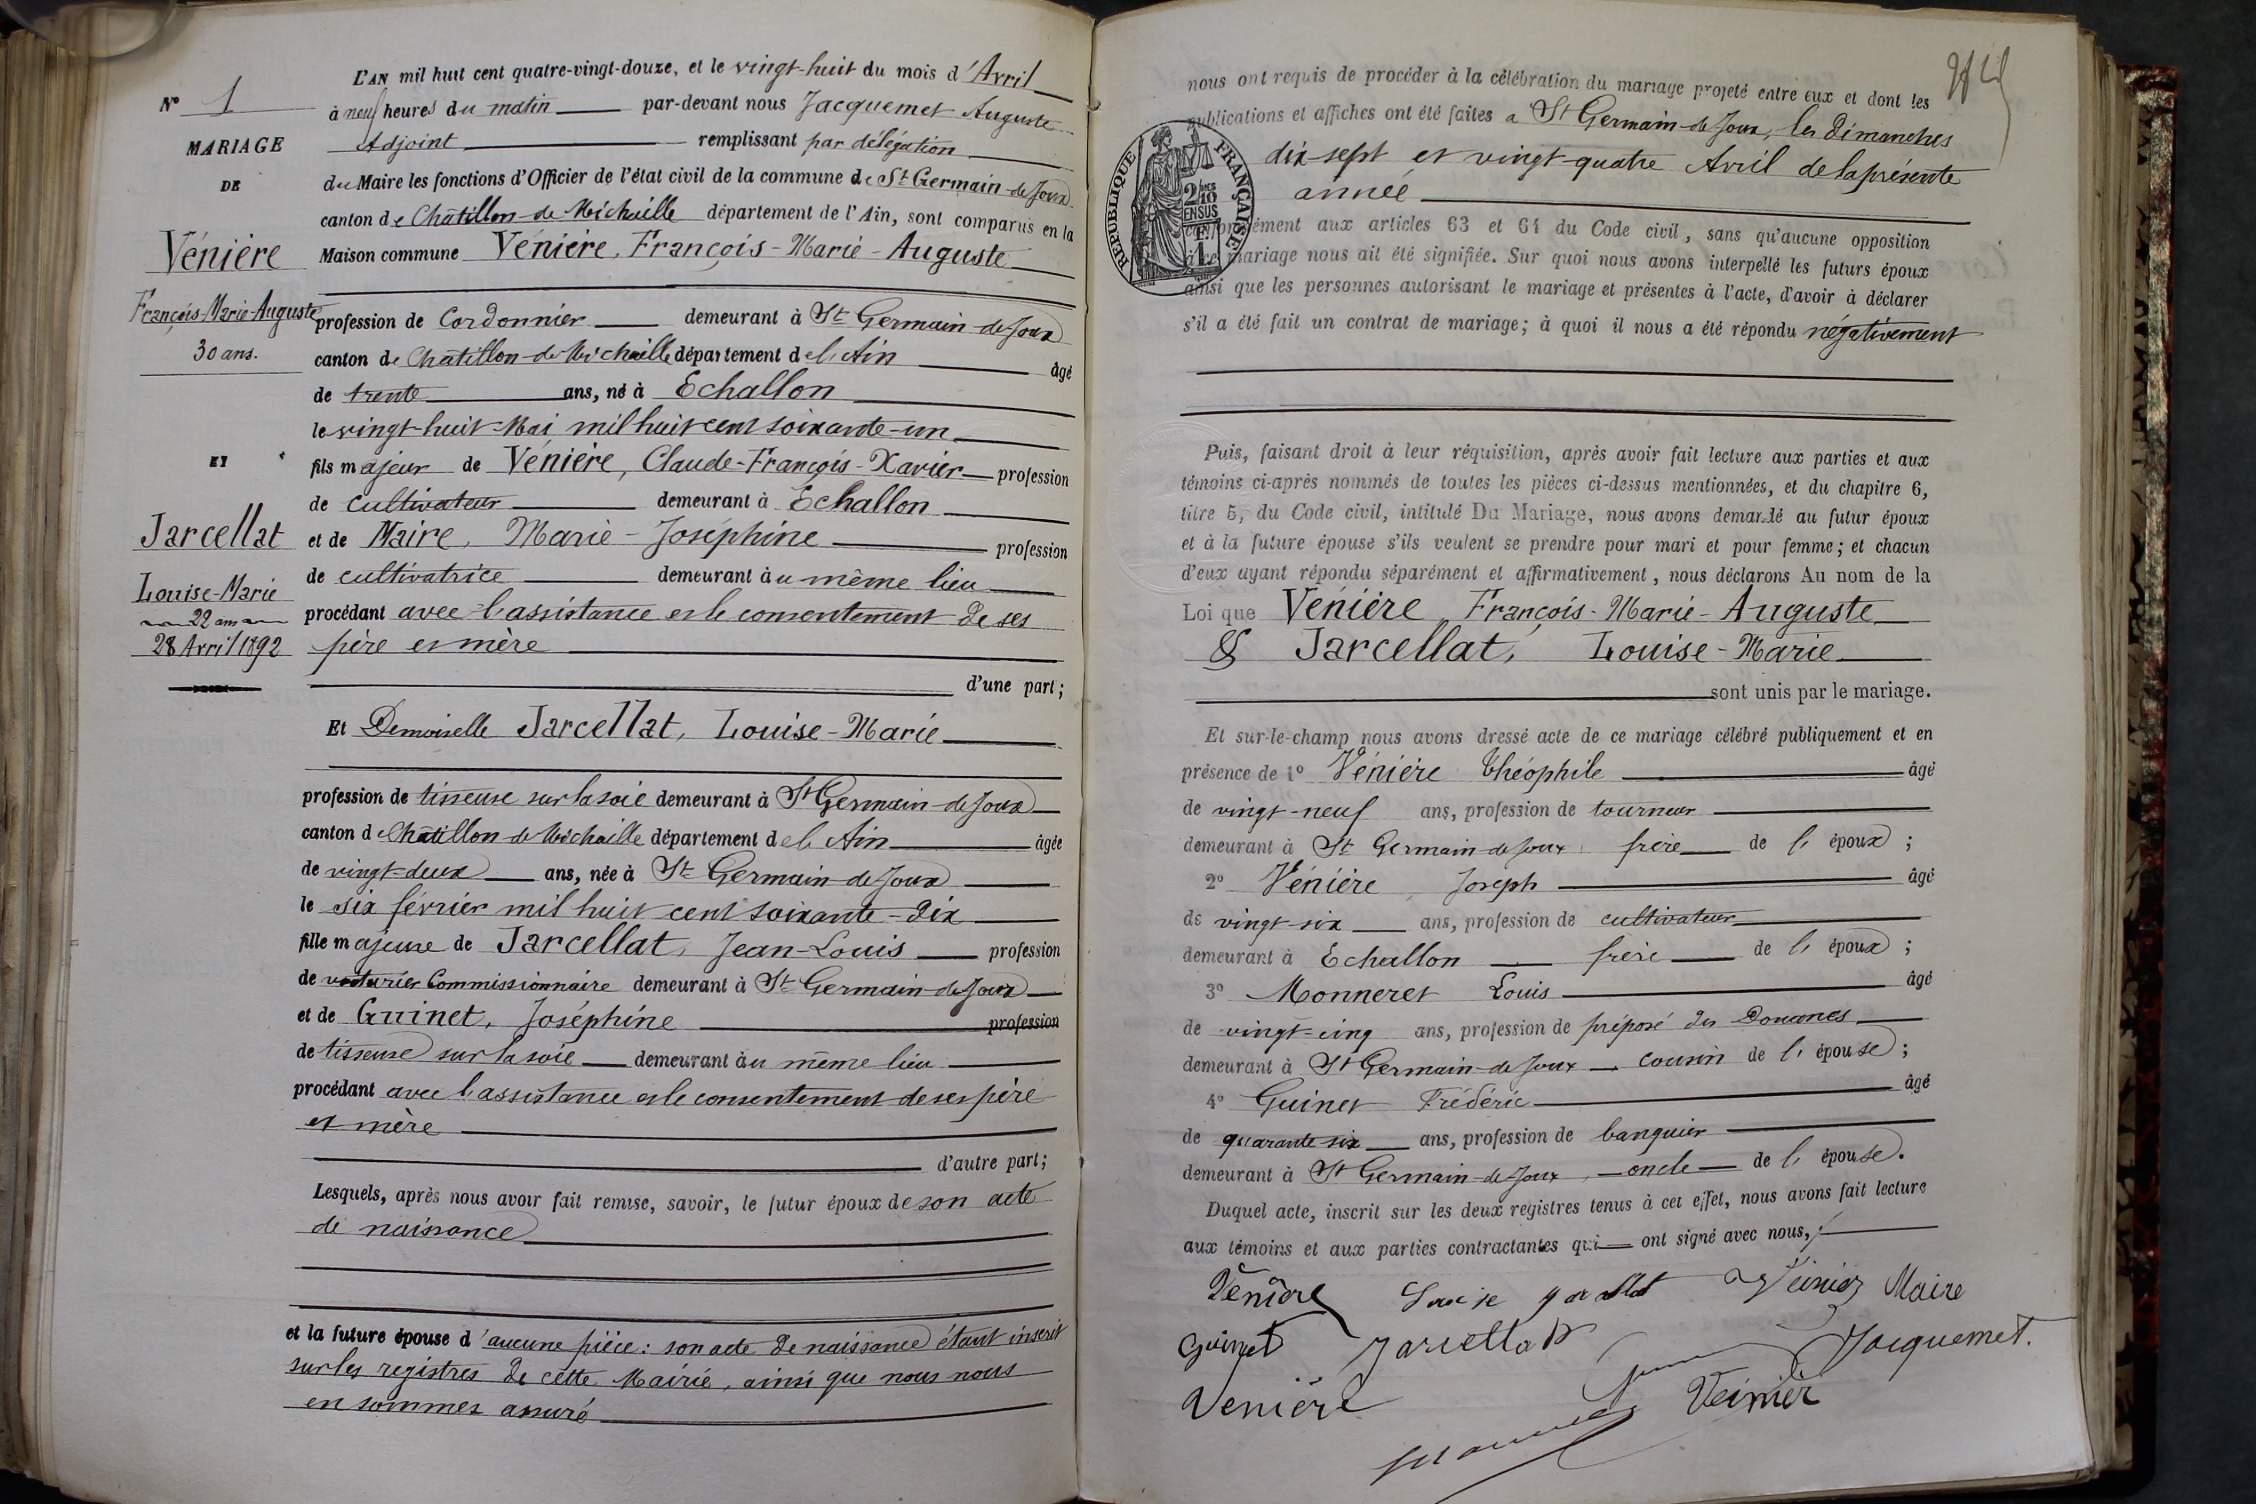 L'AN mil huit cent quatre-vingt-douze, et le vingt-huit du mois d'Avril
à neuf heures du matin par-devant nous Jacquemet Auguste
Adjoint remplissant par délégation
du Maire les fonctions d'Officier de l'état civil de la commune de St Germain-de-Joux
canton de Châtillon-de-Michaille département de l'Ain, sont comparus en la
Maison commune Vénière, François-Marie-Auguste
profession de Cordonnier demeurant à St Germain-de-Joux
canton de Châtillon-de-Michaille département de l'Ain âgé
de trente ans, né à Echallon
le vingt-huit Mai mil huit cent soixante-un
fils majeur de Vénière, Claude-François-Xavier profession
de cultivateur demeurant à Echallon
et de Maire, Marie-Joséphine profession
de cultivatrice demeurant au même lieu
procédant avec l'assistance et le consentement de ses
père et mère
d'une part;
Et Demoiselle Jarcellat, Louise-Marie
profession de tisseuse sur la soie demeurant à St Germain-de-Joux
canton de Châtillon-de-Michaille département de l'Ain âgée
de vingt-deux ans, née à St Germain-de-Joux
le six février mil huit cent soixante-dix
fille majeure de Jarcellat, Jean-Louis profession
de voiturier Commissionnaire demeurant à St Germain-de-Joux
et de Guinet, Joséphine profession
de tisseuse sur la soie demeurant au même lieu
procédant avec l'assistance et le consentement de ses père
et mère
d'autre part;
Lesquels, après nous avoir fait remise, savoir, le futur époux de son acte
de naissance
et la future épouse d'aucune pièce: son acte de naissance étant inscrit
sur les registres de cette Mairie, ainsi que nous nous
en sommes assuré
N° 1
MARIAGE
DE
Vénière
François-Marie-Auguste
30 ans.
ET
Jarcellat
Louise-Marie
22 ans
28 Avril 1892
nous ont requis de procéder à la célébration du mariage projeté entre eux et dont les
publications et affiches ont été faites a St Germain-de-Joux, les dimanches
dix-sept et vingt-quatre Avril de la présente
année
conformément aux articles 63 et 64 du Code civil, sans qu'aucune opposition
à ce mariage nous ait été signifiée. Sur quoi nous avons interpellé les futurs époux
ainsi que les personnes autorisant le mariage et présentes à l'acte, d'avoir à déclarer
s'il a été fait un contrat de mariage; à quoi il nous a été répondu négativement
REPUBLIQUE FRANÇAISE
2/10
EN SUS
1
Puis, faisant droit à leur réquisition, après avoir fait lecture aux parties et aux
témoins ci-après nommés de toutes les pièces ci-dessus mentionnées, et du chapitre 6,
titre 5, du Code civil, intitulé Du Mariage, nous avons demandé au futur époux
et à la future épouse s'ils veulent se prendre pour mari et pour femme; et chacun
d'eux ayant répondu séparément et affirmativement, nous déclarons Au nom de la
Loi que Vénière François-Marie-Auguste
& Jarcellat, Louise-Marie
sont unis par le mariage.
Et sur-le-champ nous avons dressé acte de ce mariage célébré publiquement et en
présence de 1° Vénière Théophile âgé
de vingt-neuf ans, profession de tourneur
demeurant à St Germain-de-Joux, frère de l'époux;
2° Vénière Joseph âgé
de vingt-six ans, profession de cultivateur
demeurant à Echallon frère de l'époux;
3° Monneret Louis âgé
de vingt-cinq ans, profession de préposé des Douanes
demeurant à St Germain-de-Joux cousin de l'épouse;
4° Guinet Frédéric âgé
de quarante-six ans, profession de banquier
demeurant à St Germain-de-Joux, oncle de l'épouse.
Duquel acte, inscrit sur les deux registres tenus à cet effet, nous avons fait lecture
aux témoins et aux parties contractantes qui ont signé avec nous,
Vénière Louise Maire
Guinet Jarcellat Jacquemet.
Venière Veinièr